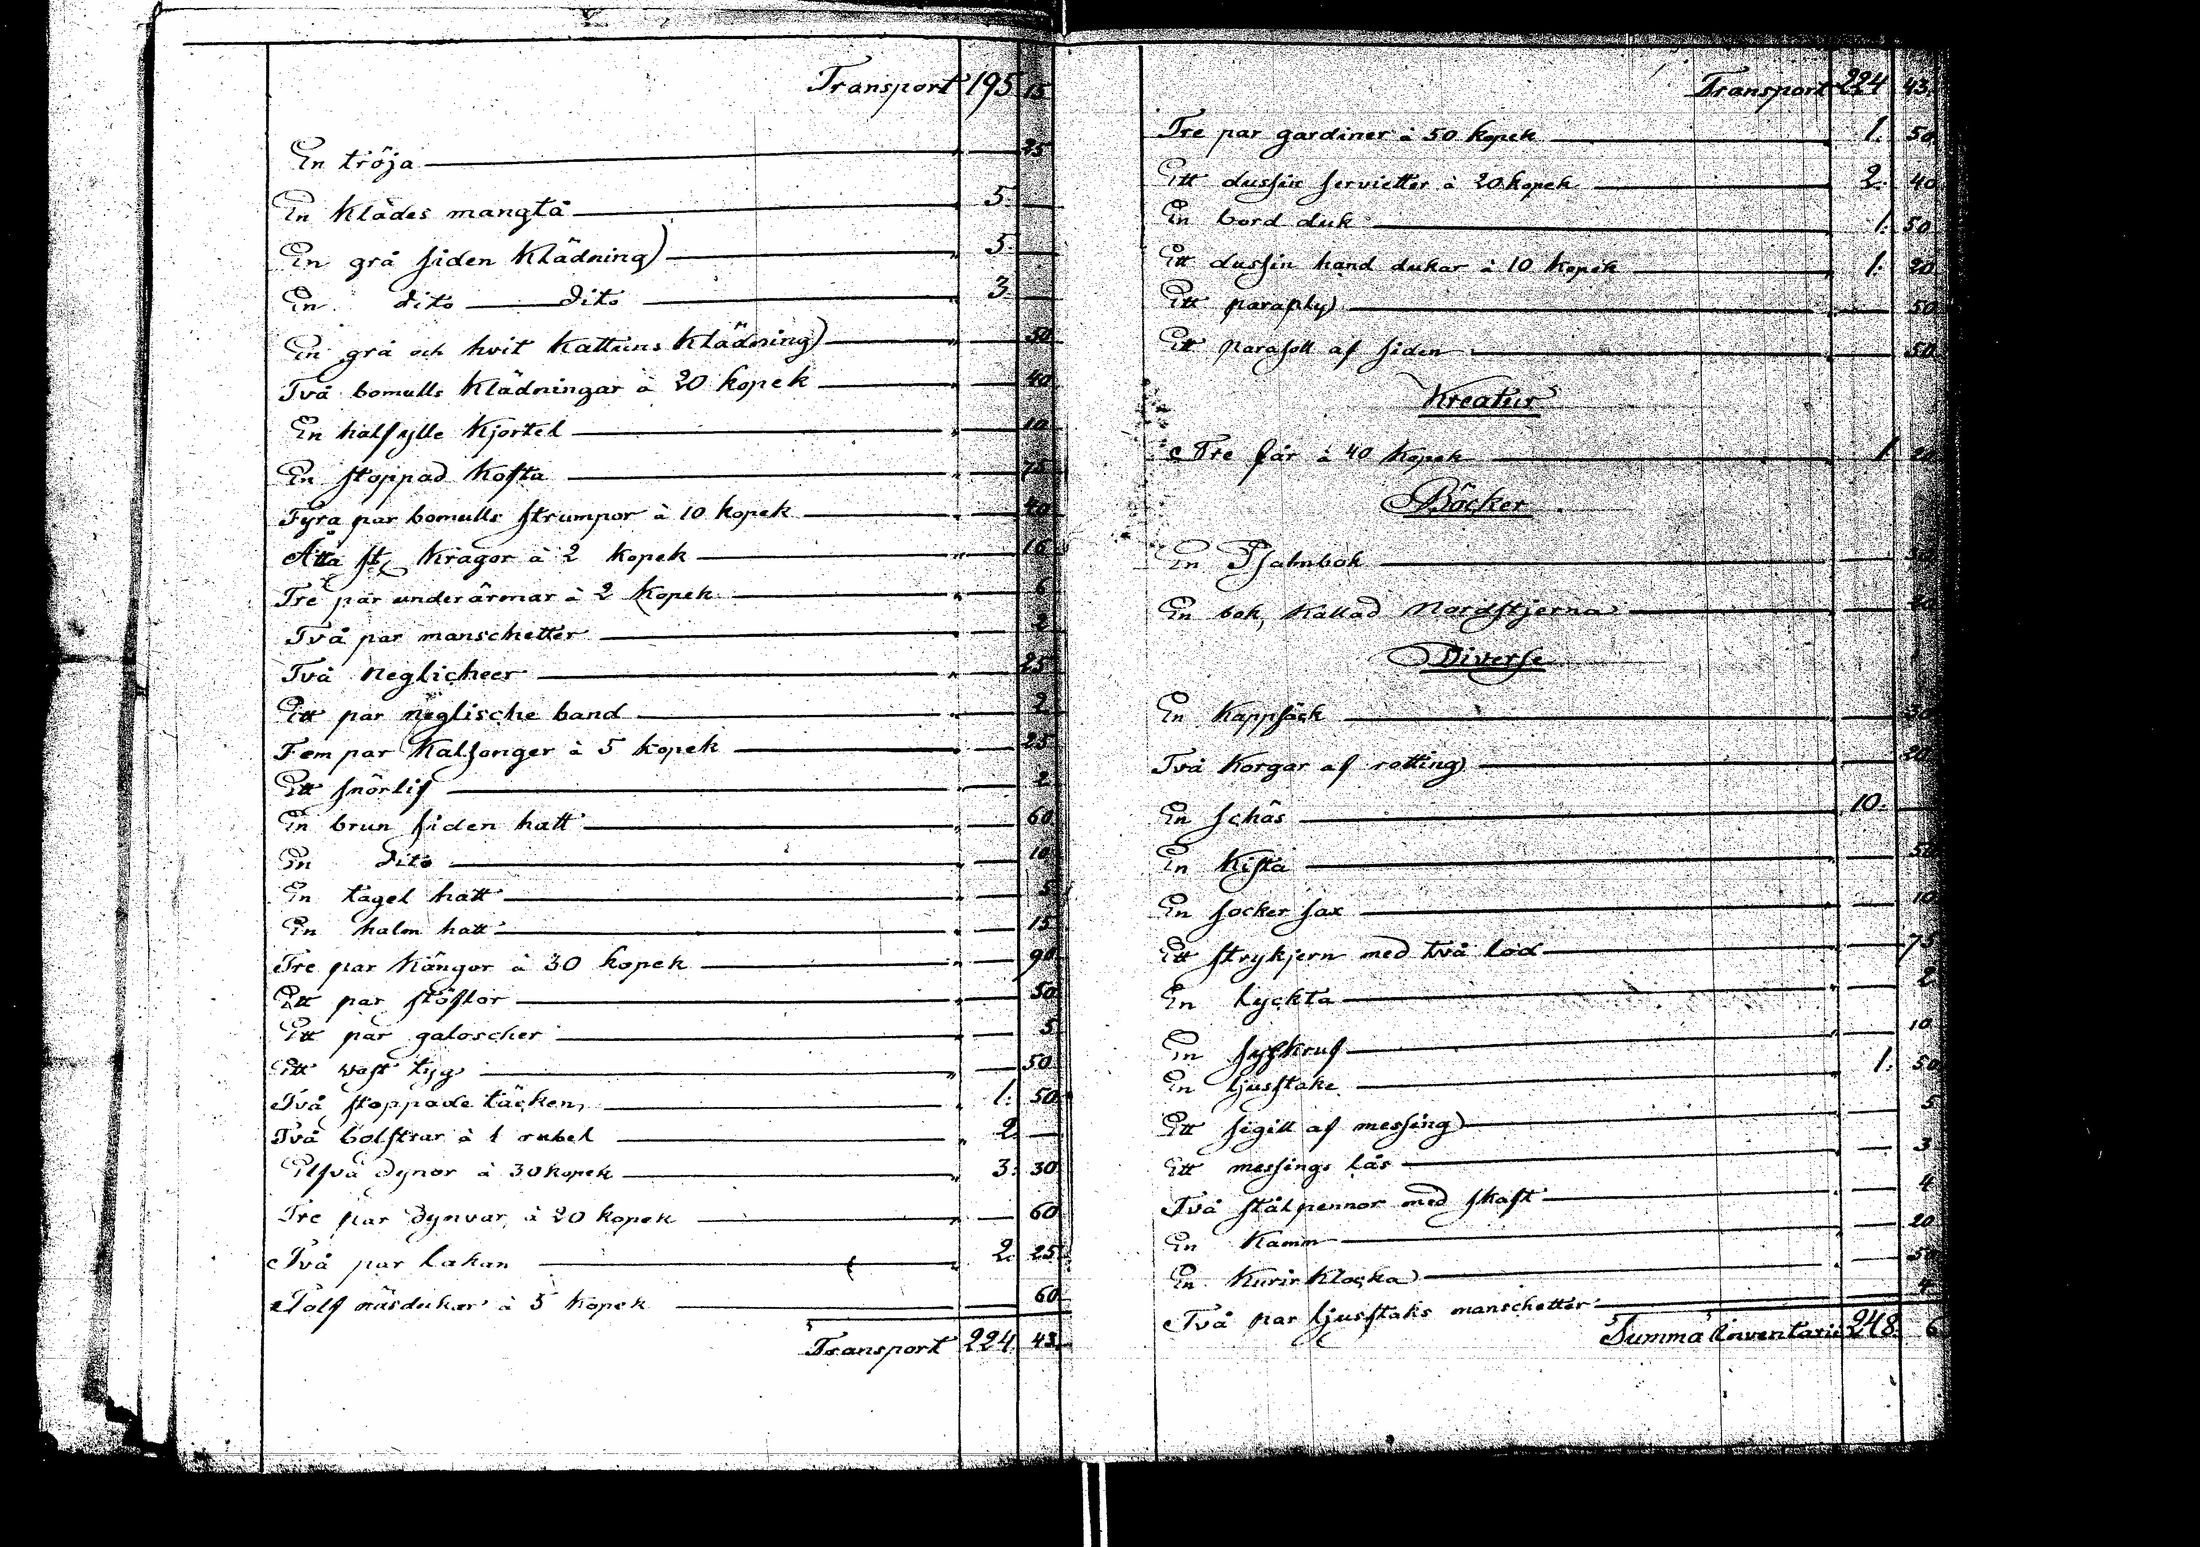 Transport 195 15
En tröja 25
En Klädes mangtå 5
En grå siden Klädning 5
En dito dito 3
En grå och hvit Kattuns Klädning 50
Två bomulls Klädningar à 20 kopek 40
En halfylle Kjortel 10
En stoppad Kofta 75
Fyra par bomulls strumpor à 10 kopek 40
Åtta st. Kragor à 2 kopek 16
Tre par underärmar à 2 kopek 6
Två par manschetter 2
Två Neglicheer 25
Ett par neglische band 2
Fem par Kalsonger à 5 kopek 25
Ett snörlif 2
En brun siden hatt 60
En dito 10
En tagel hatt 5
En halm hatt 15
Tre par Kängor à 30 kopek 90
Ett par stöflor 50
Ett par galoscher 5
Ett waft tyg 50
Två stoppade täcken 1. 50
Två bolstrar à 1 rubel 2.
Elfva dynor à 30 kopek 3. 30
Tre par dynvar à 20 kopek 60
Två par lakan 2. 25
Tolf näsdukar à 5 kopek 60
Transport 224. 43.
Transport 224 43.
Tre par gardiner à 50 kopek 1. 50
Ett dussin servietter à 20 kopek 2. 40
En bord duk 1. 50
Ett dussin hand dukar à 10 kopek 1. 20
Ett paraply 50
Ett parasoll af siden 50
Kreatur
Tre får à 40 kopek 1 20
Böcker
En Psalmbok
En bok, Kallad Nordstjerna
Diverse
En Kappsäck 30
Två Korgar af rotting 20
En schäs 10.
En Kista 50
En socker sax 10
Ett strykjern med två lod 75
En lyckta 2
En syskruf 10
En ljusstake 1. 50
Ett sigill af messing 5
Ett messings lås 3
Två stålpennor med skaft 4
En Kamm 20
En Kurir Klocka 50
Två par ljusstaks manschetter 4
Summa Inventarii 248. 6